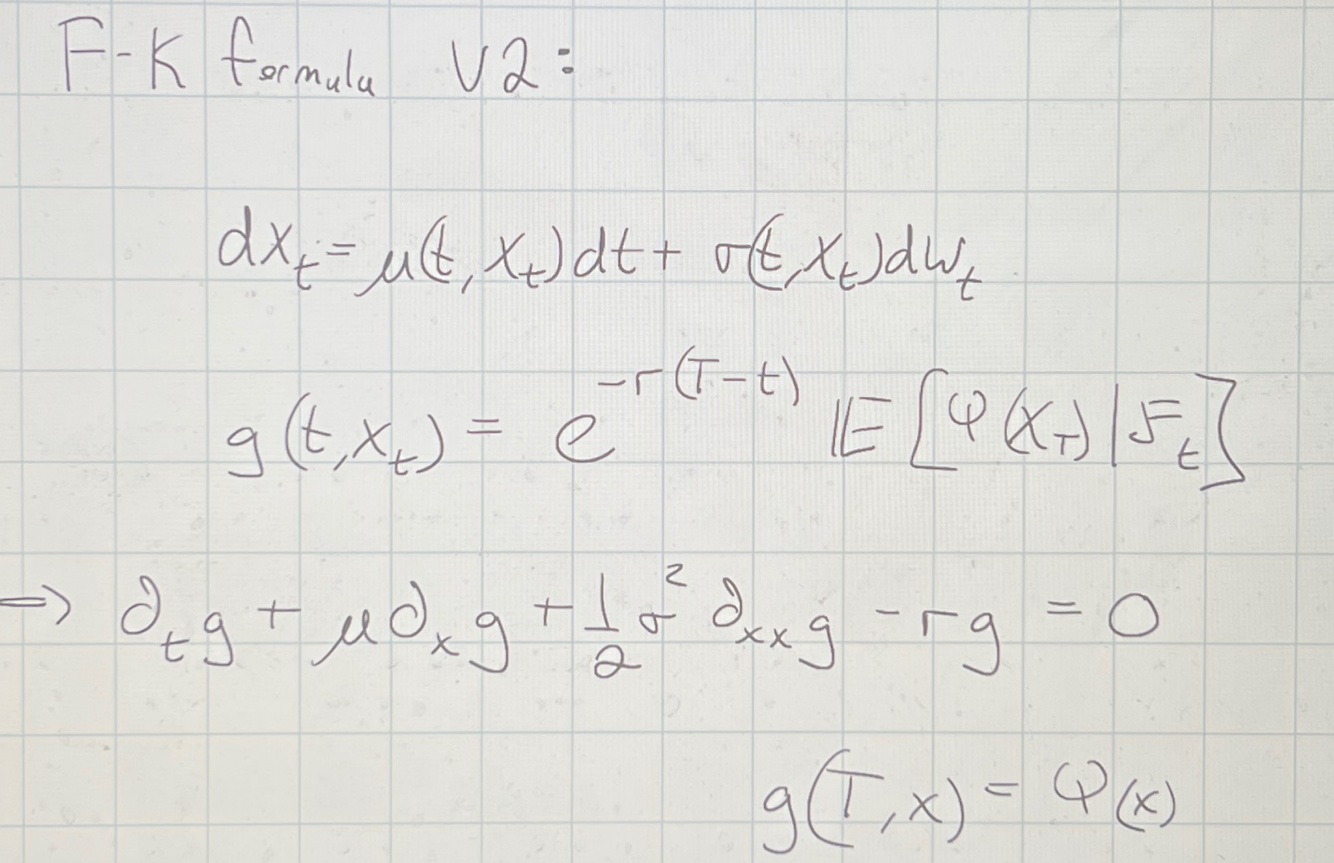 F-K formula V2:
dX_t = μ(t, X_t)dt + σ(t, X_t)dW_t
g(t, X_t) = e^{-r(T-t)} 𝔼[φ(X_T) | ℱ_t]
⇒ ∂_t g + μ ∂_x g + \frac{1}{2} σ^2 ∂_{xx} g - rg = 0
g(T, x) = φ(x)